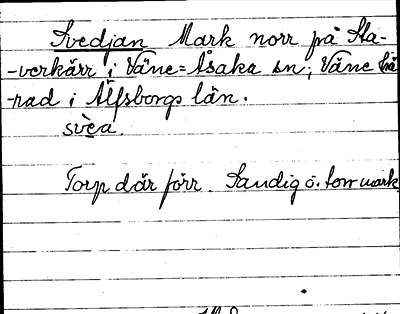 Svedjan Mark norr på Sta-
-verkärr i Väne-Åsaka sn; Väne hä
-rad i Älfsborgs län.
svèa.
Torp där förr. Sandig o. torr mark